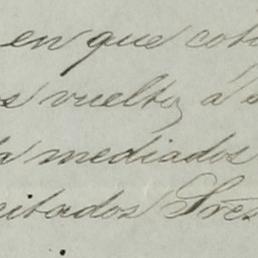 en que coto
s vuelto, á
a mediados
citados Sres